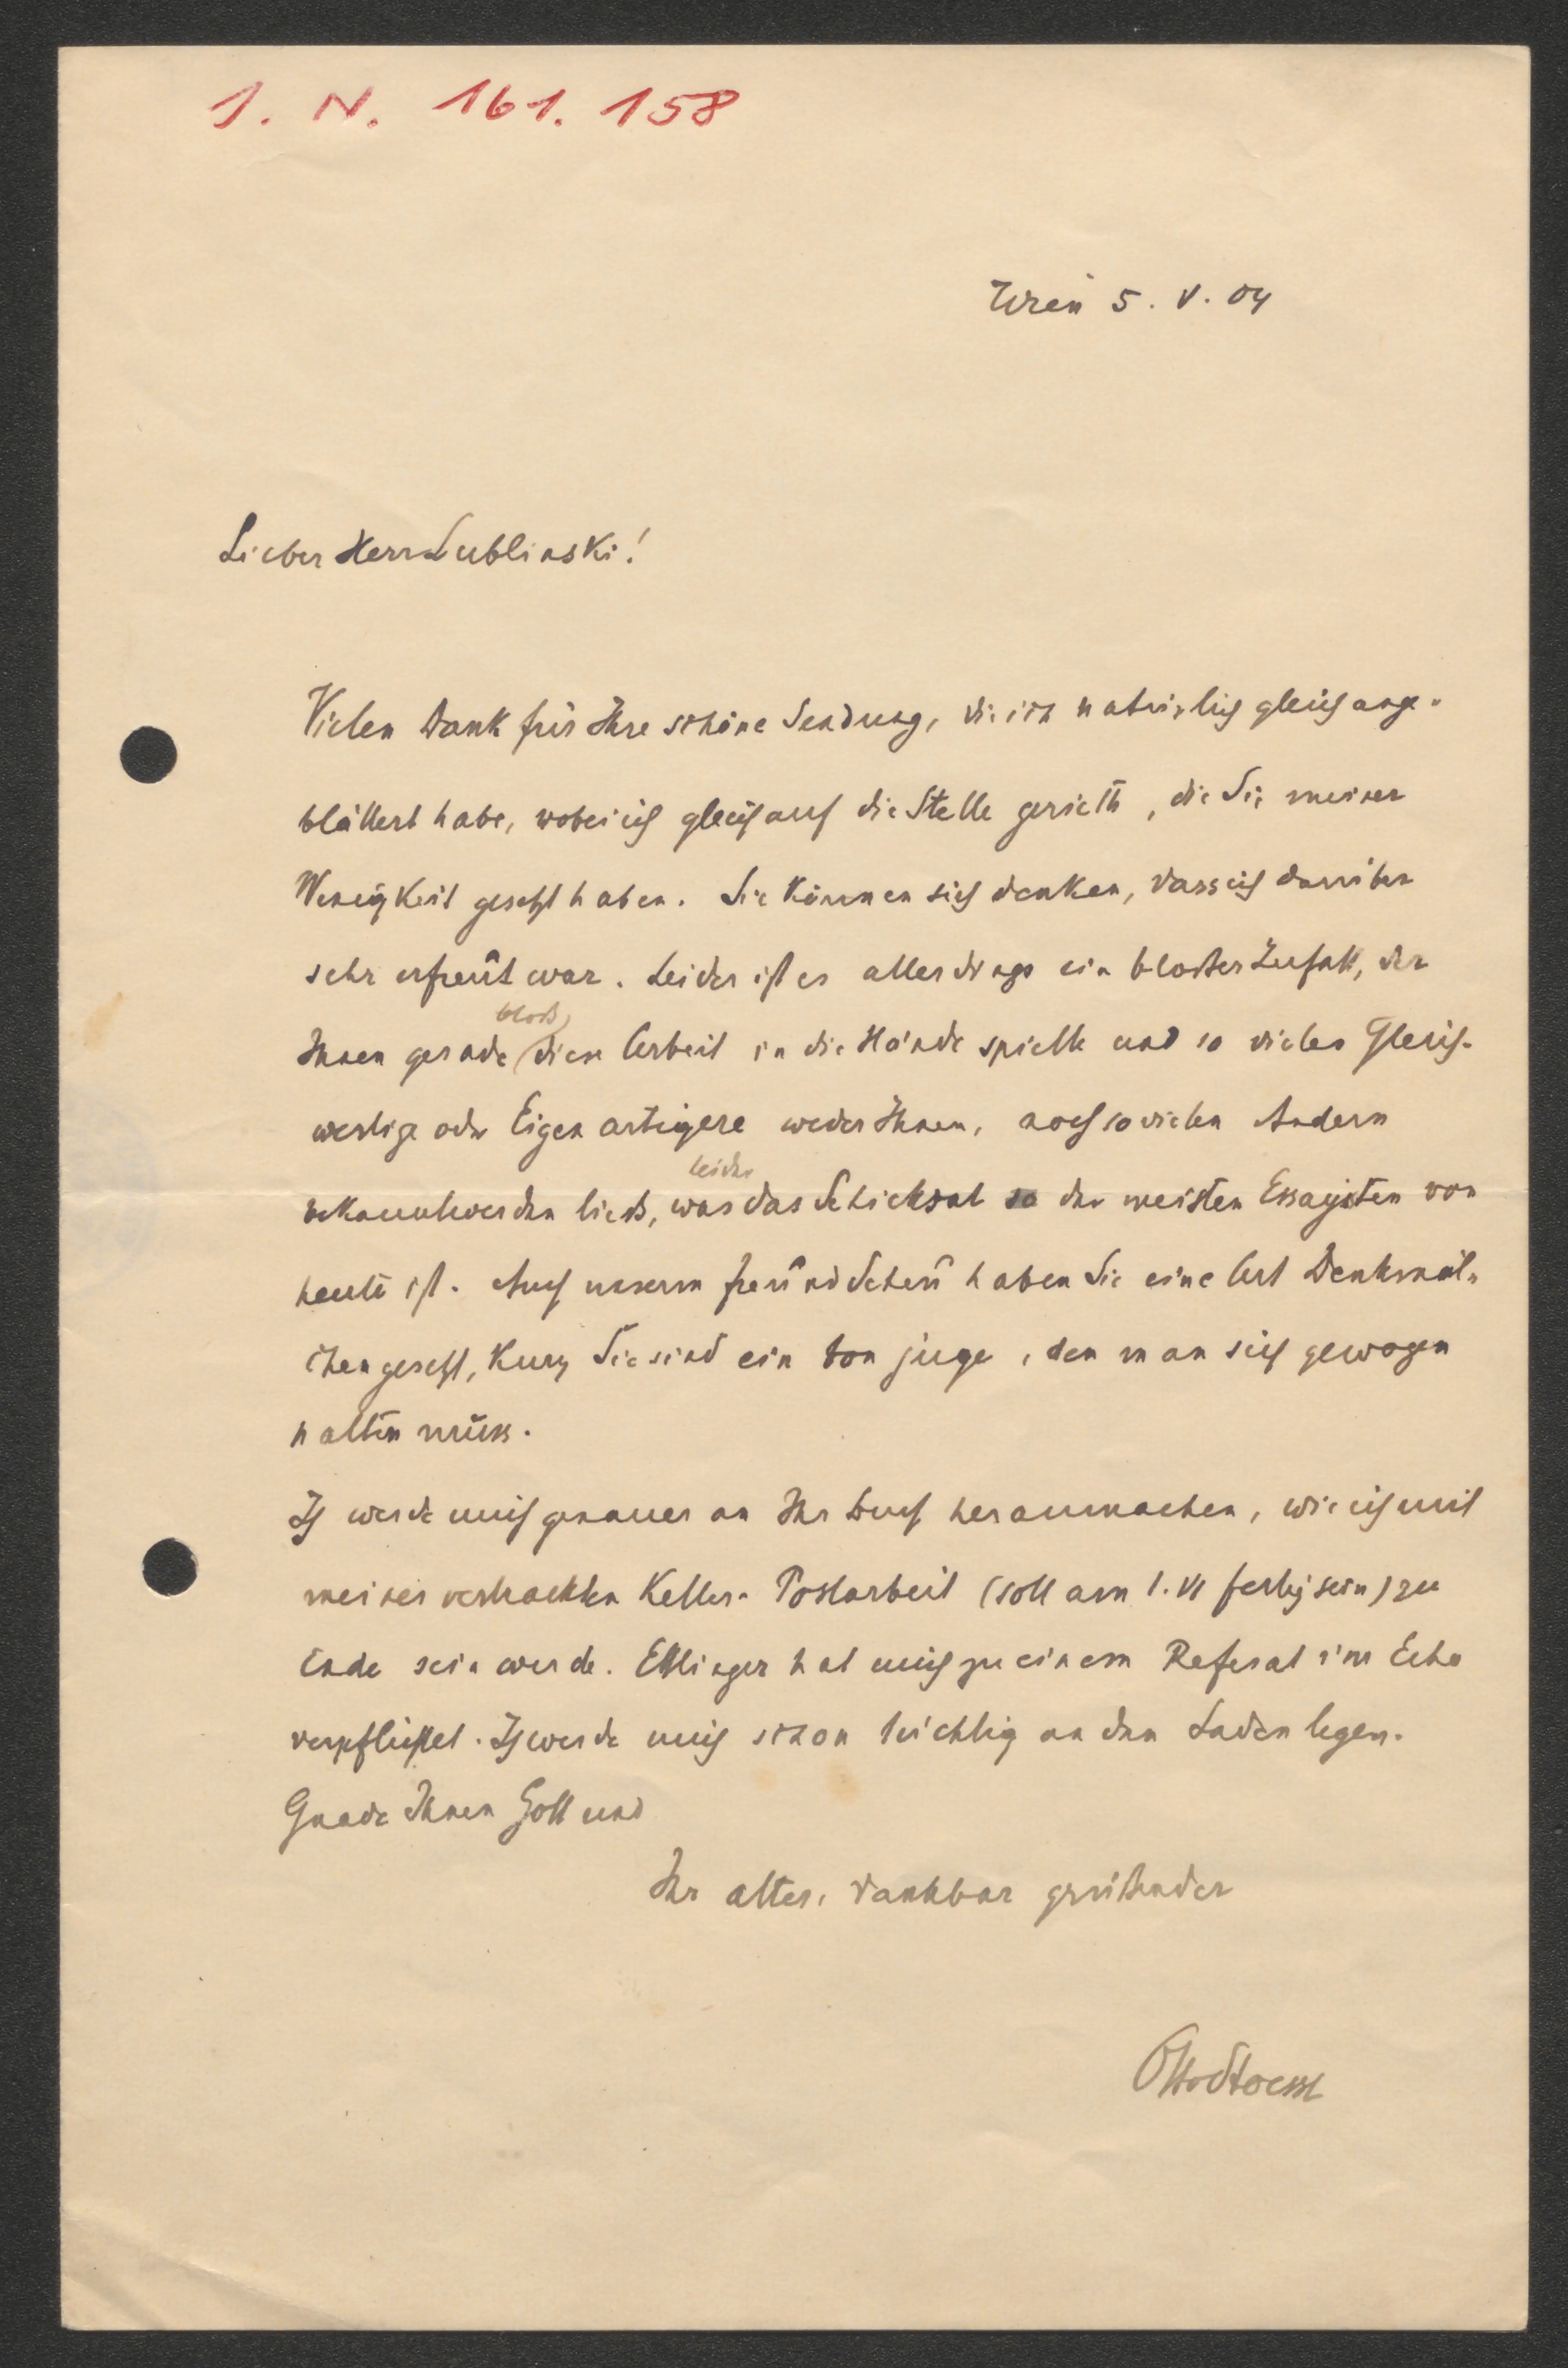 I. N. 161. 158
Wien 5. V. 04
Lieber Herr Lublinski!
Vielen Dank für Ihre schöne Sendung, die ich natürlich gleich ange-
blättert habe, wobei ich gleich auf die Stelle gerieth, die Sie meiner
Wenigkeit gesetzt haben. Sie können sich denken, dass ich darüber
sehr erfreut war. Leider ist es allerdings ein bloßer Zufall, der
bloß
Ihnen gerade diese Arbeit in die Hände spielte und so vieles Gleich-
wertige oder Eigenartigere weder Ihnen, noch so vielen Andern
leider
bekanntwerden ließ, was das Schicksal der meisten Essayisten von
heute ist. Auch unserm Freund Scheu haben Sie eine Art Denkmäl-
chen gesetzt, kurz Sie sind ein bon juge, den man sich gewogen
halten muss.
Ich werde mich genauer an Ihr Buch heranmachen, wie ich mit
meiner vertrackten Keller-Postarbeit (soll am 1. VI fertig sein) zu
Ende sein werde. Ettlinger hat mich zu einem Referat im Echo
verpflichtet. Ich werde mich schon tüchtig an den Laden legen.
Gnade Ihnen Gott und
Ihr alter, dankbar grüßender
Otto Stoessl